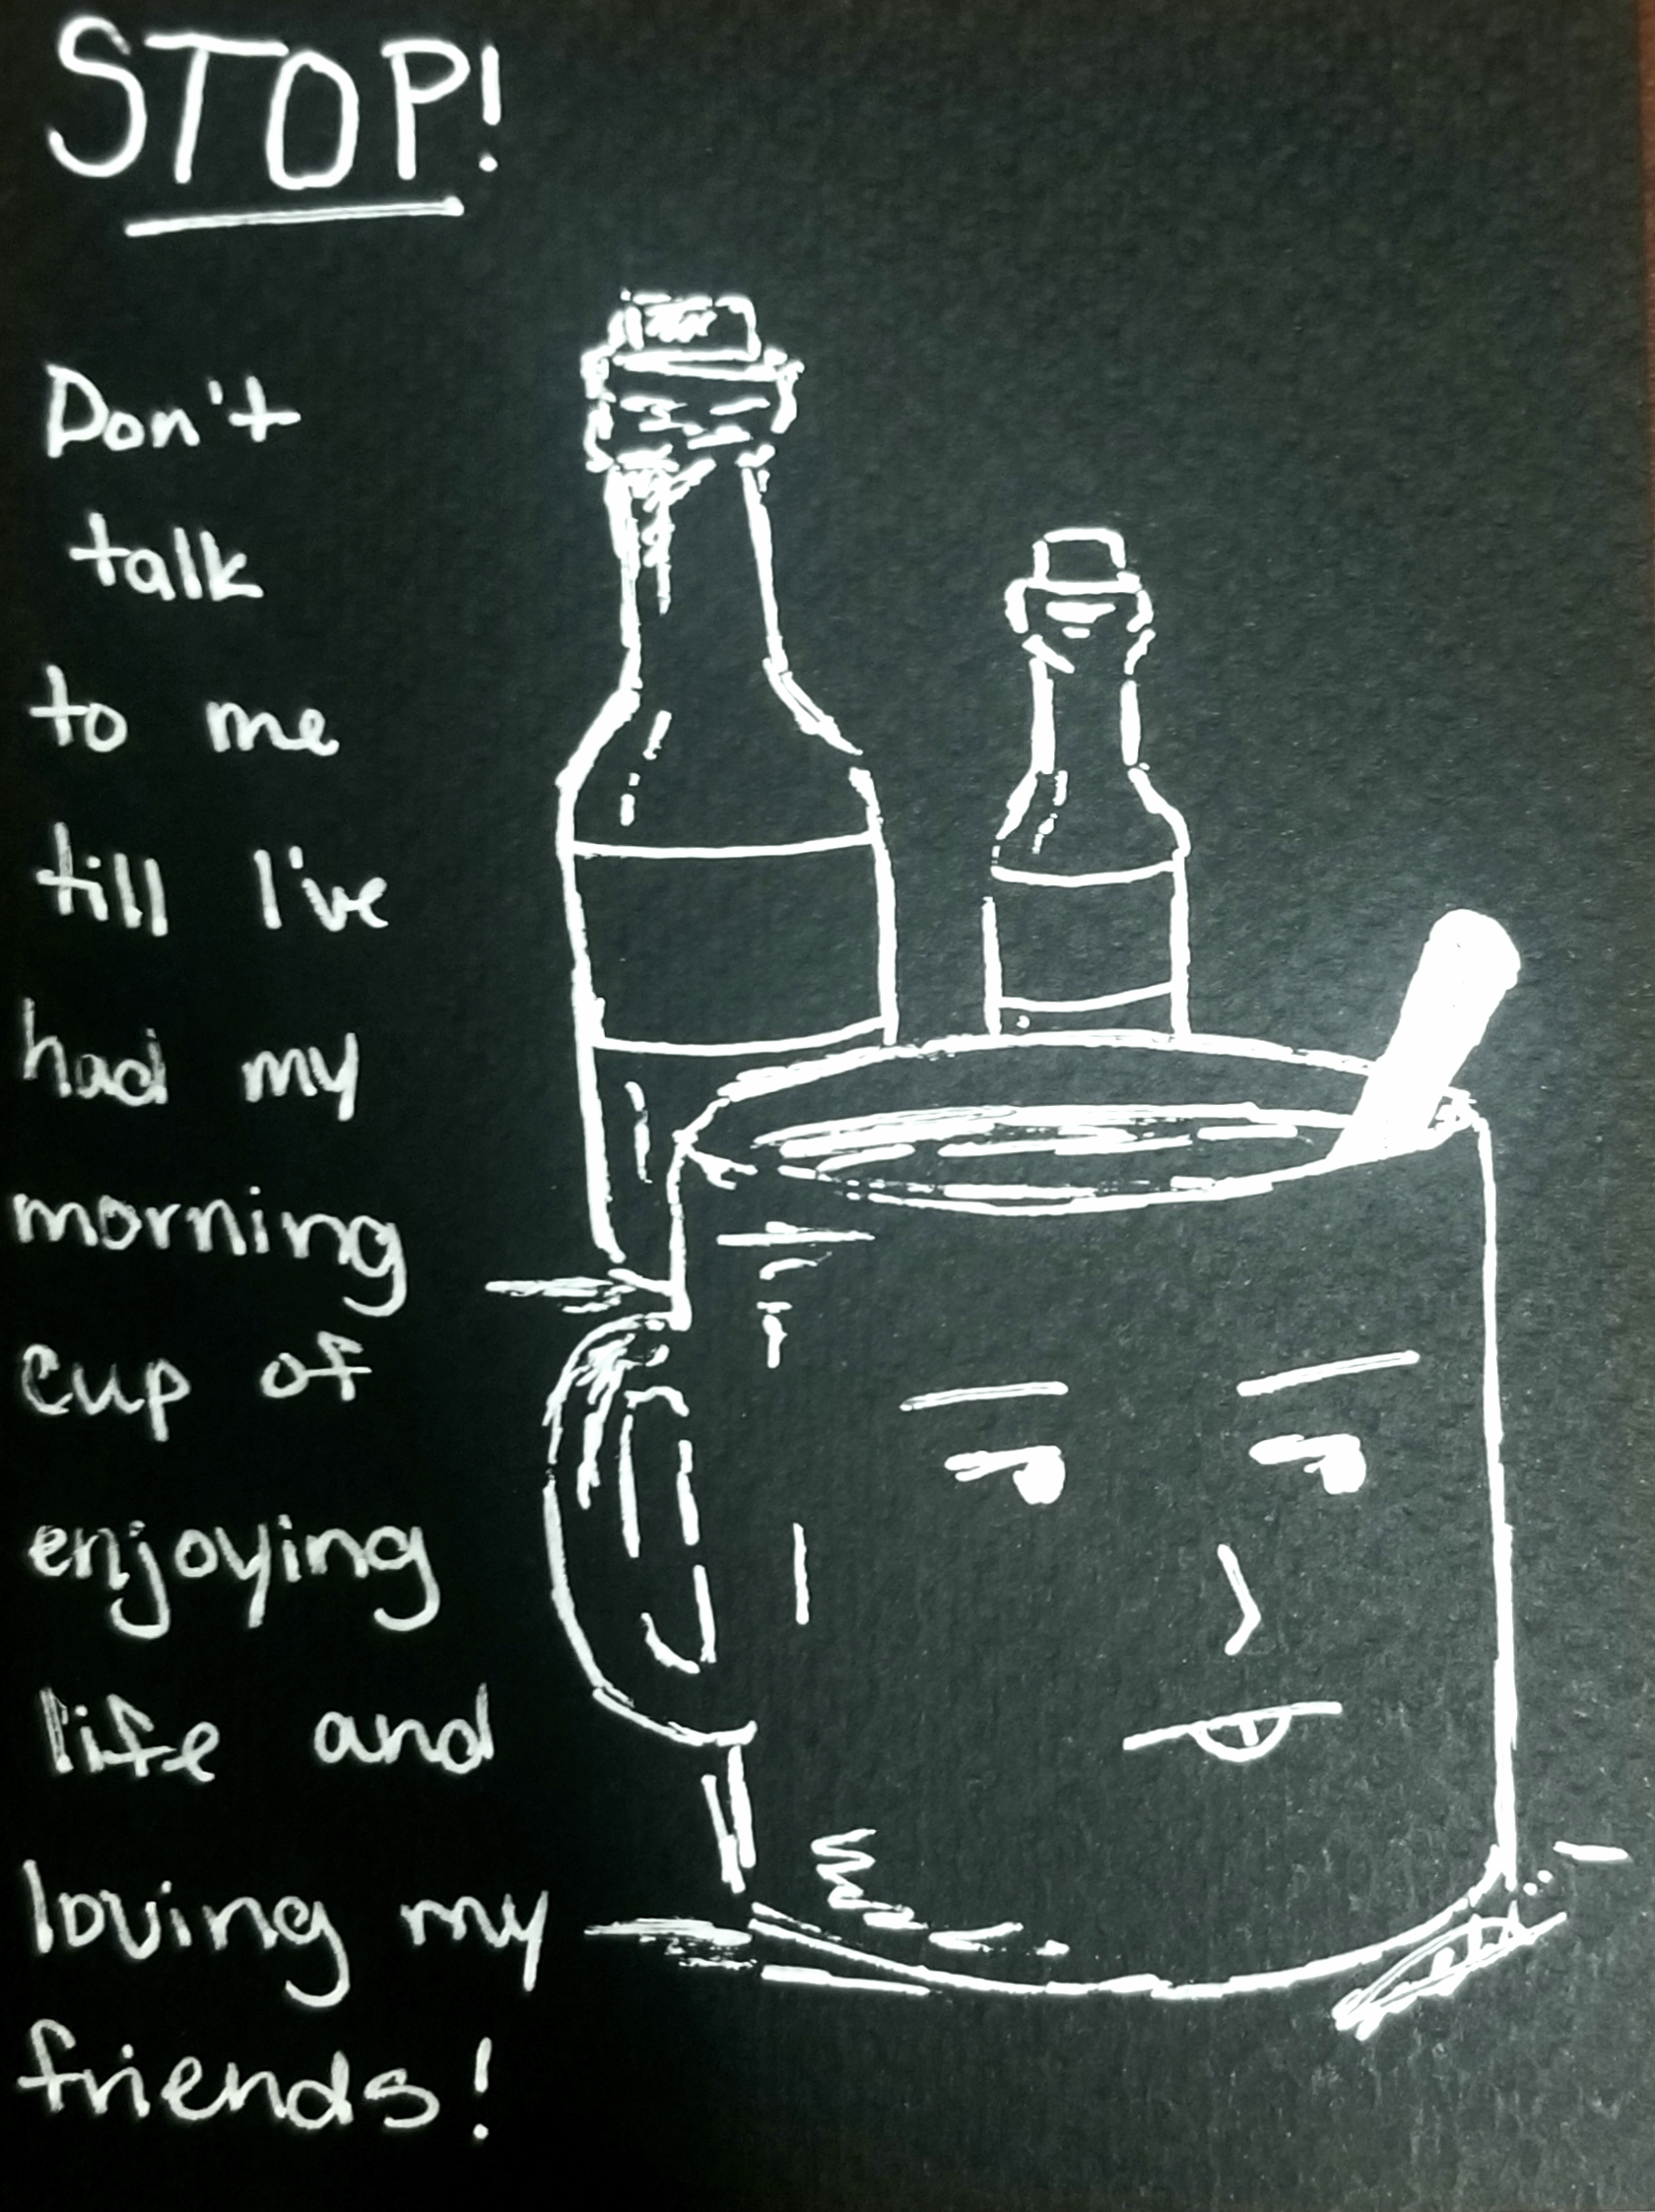 STOP!
Don't
talk
to me
till I've
had my
morning
cup of
enjoying
life and
loving my
friends!